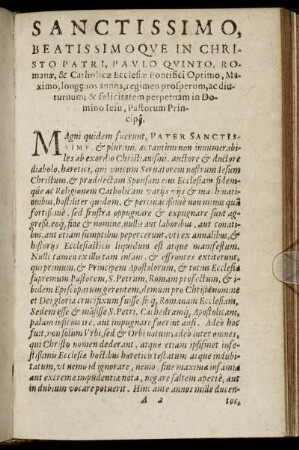 SANCTISSIMO,
BEATISSIMOQVE IN CHRI
STO PATRI, PAVLO QVINTO,
Romanæ, & Catholicæ Ecclesiæ Pontifici Optimo, Ma-
ximo, longæuos annos, regimen prosperum, ac diu-
turnum, & felicitatem perpetuam in Do-
mino Iesu, Pastorum Prin-
cipi.
MAgni quidem fuerunt, PATER SANCTIS-
SIME, & plurimi, ac tantum non innumerabi-
les ab exordio Christianismi, auctore & ductore
diabolo, hæretici, qui vnicum Seruatorem nostrum Iesum
Christum, & prædilectam Sponsam eius Ecclesiam fidem-
que ac Religionem Catholicam varijs vijs & machina-
tionibus, hostiliter quidem, & pertinacissimè non minus quàm
fortissimè, sed frustra oppugnare & expugnare sunt ag-
gressi. eoq́; fine & nomine, nullis aut laboribus, aut conati-
bus, aut etiam sumptibus pepercerunt, vt ex annalibus, &
historijs Ecclesiasticis liquidum est atque manifestum.
Nulli tamen ex illis tam infani, & effrontes extiterunt,
qui primum, & Principem Apostolorum, & totius Ecclesiæ
supremum Pastorem, S. Petrum, Romam profectum, & i-
bidem Episcopatum gerentem, demum pro Christi nomine
et Dei gloria crucifixum fuisse sicq́;, Romanam Ecclesiam,
Sedem esse & mãsisse S. Petri, Cathedramq́;, Apostolicam,
palam inficias ire, aut impugnare fuerint ausi. Adeò hoc
fuit, non solum Vrbi, sed & Orbi notum, adeò inter omnes,
qui Christo nomen dederant, atque etiam ipsismet infe-
stissimis Ecclesiæ hostibus hæreticis testatum atque indubi-
tatum, vt nemo id ignorare, nemo, sine maxima infamia
aut extrema impudentiæ nota, negare saltem apertè, aut
in dubium vocare potuerit. Hinc ante annos mille ducen-
A 2 tos,